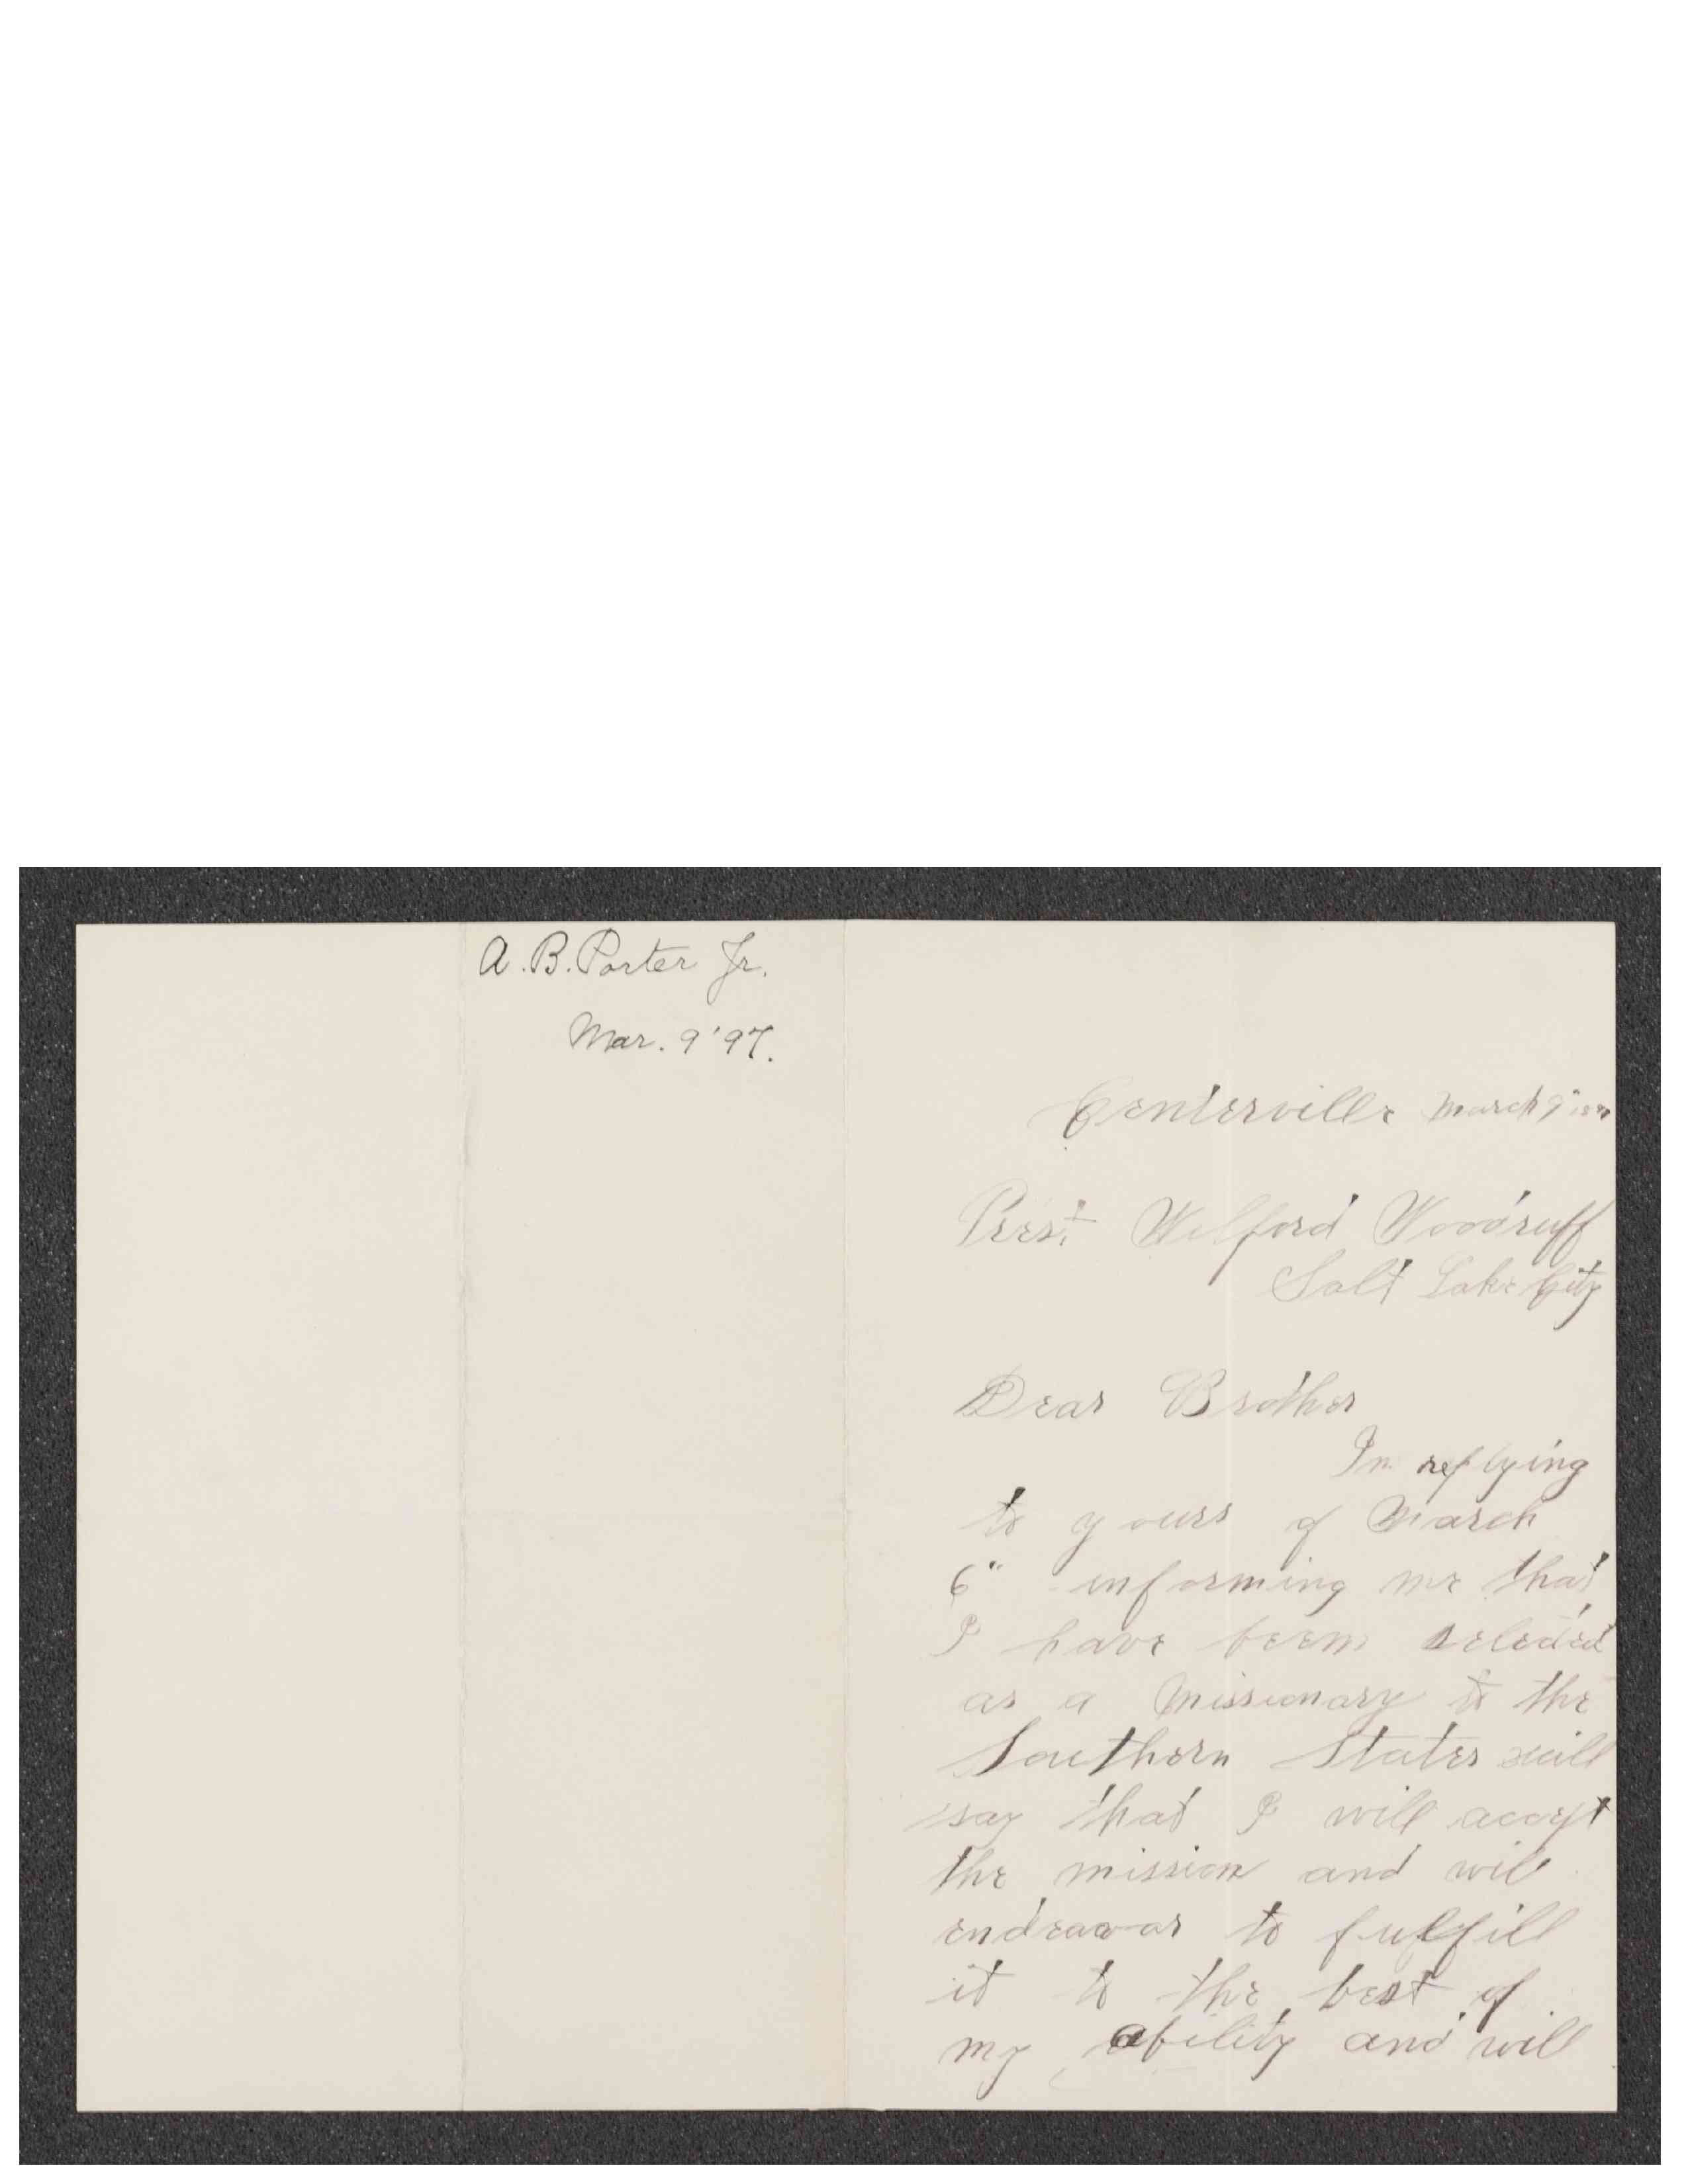 A. B. Porter Jr.
Mar. 9 '97.
Centerville March 9" 1897
Prest. Wilford Woodruff
Salt Lake City
Dear Brother
In replying
to yours of March
6" informing me that
I have been selected
as a missionary to the
Southern States will
say that I will accept
the mission and will
endeavor to fulfill
it to the best of
my ability and will